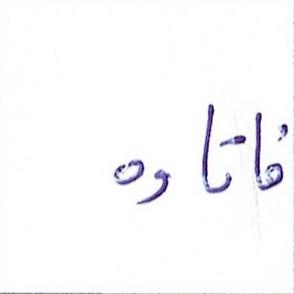 فاتاوه